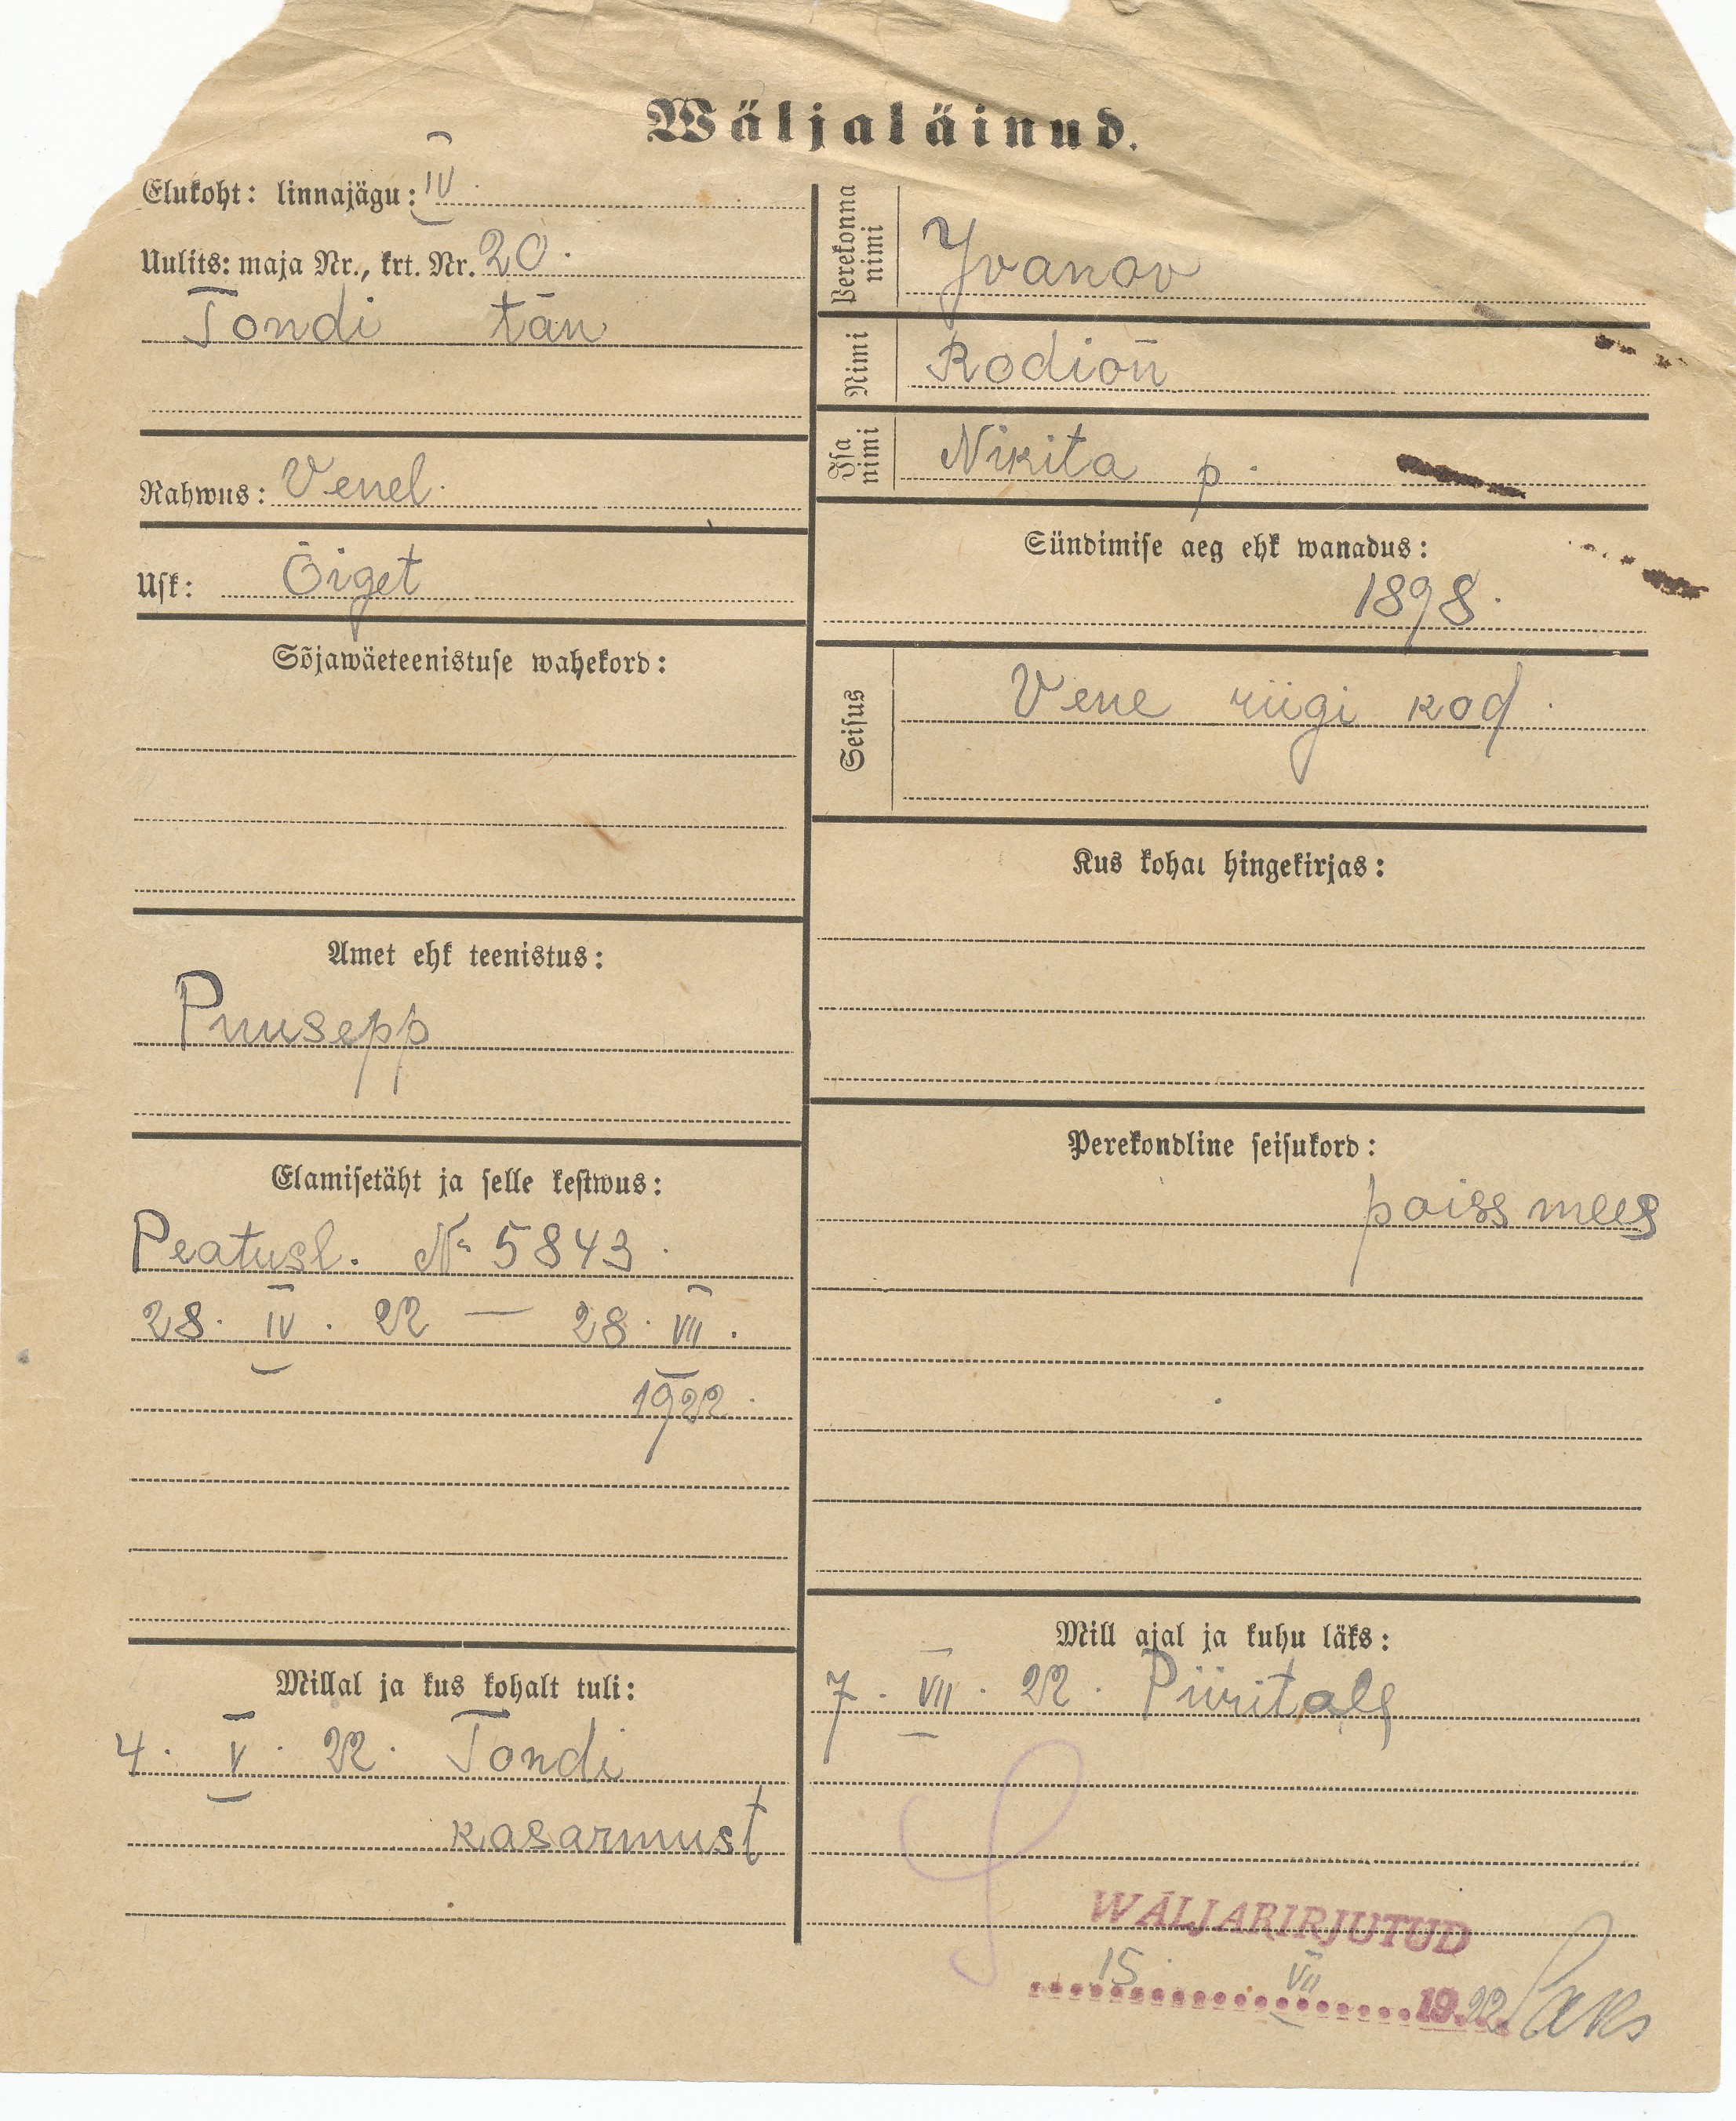 Wäljaläinud.
Elukoht: linnajägu: IV.
Uulits: maja Nr., krt. Nr. 20.
Tondi tän
Rahwus: Venel.
Usk: Õiget
Sõjawäeteenistuse wahekord:
Amet ehk teenistus:
Puusepp
Elamisetäht ja selle kestwus:
Peatusl. № 5843.
28. IV. 22 — 28. VII.
1922.
Millal ja kus kohalt tuli:
4. V. 22. Tondi
kasarmust
Perekonna nimi
Yvanov
Nimi
Rodion
Isa nimi
Nikita p.
Sündimise aeg ehk wanadus:
1898.
Seisus
Vene riigi kod.
Kus kohal hingekirjas:
Perekondline seisukord:
poissmees
Mill ajal ja kuhu läks:
7. VII. 22.
WÄLJAKIRJUTUD
15. VII 1922 Saks